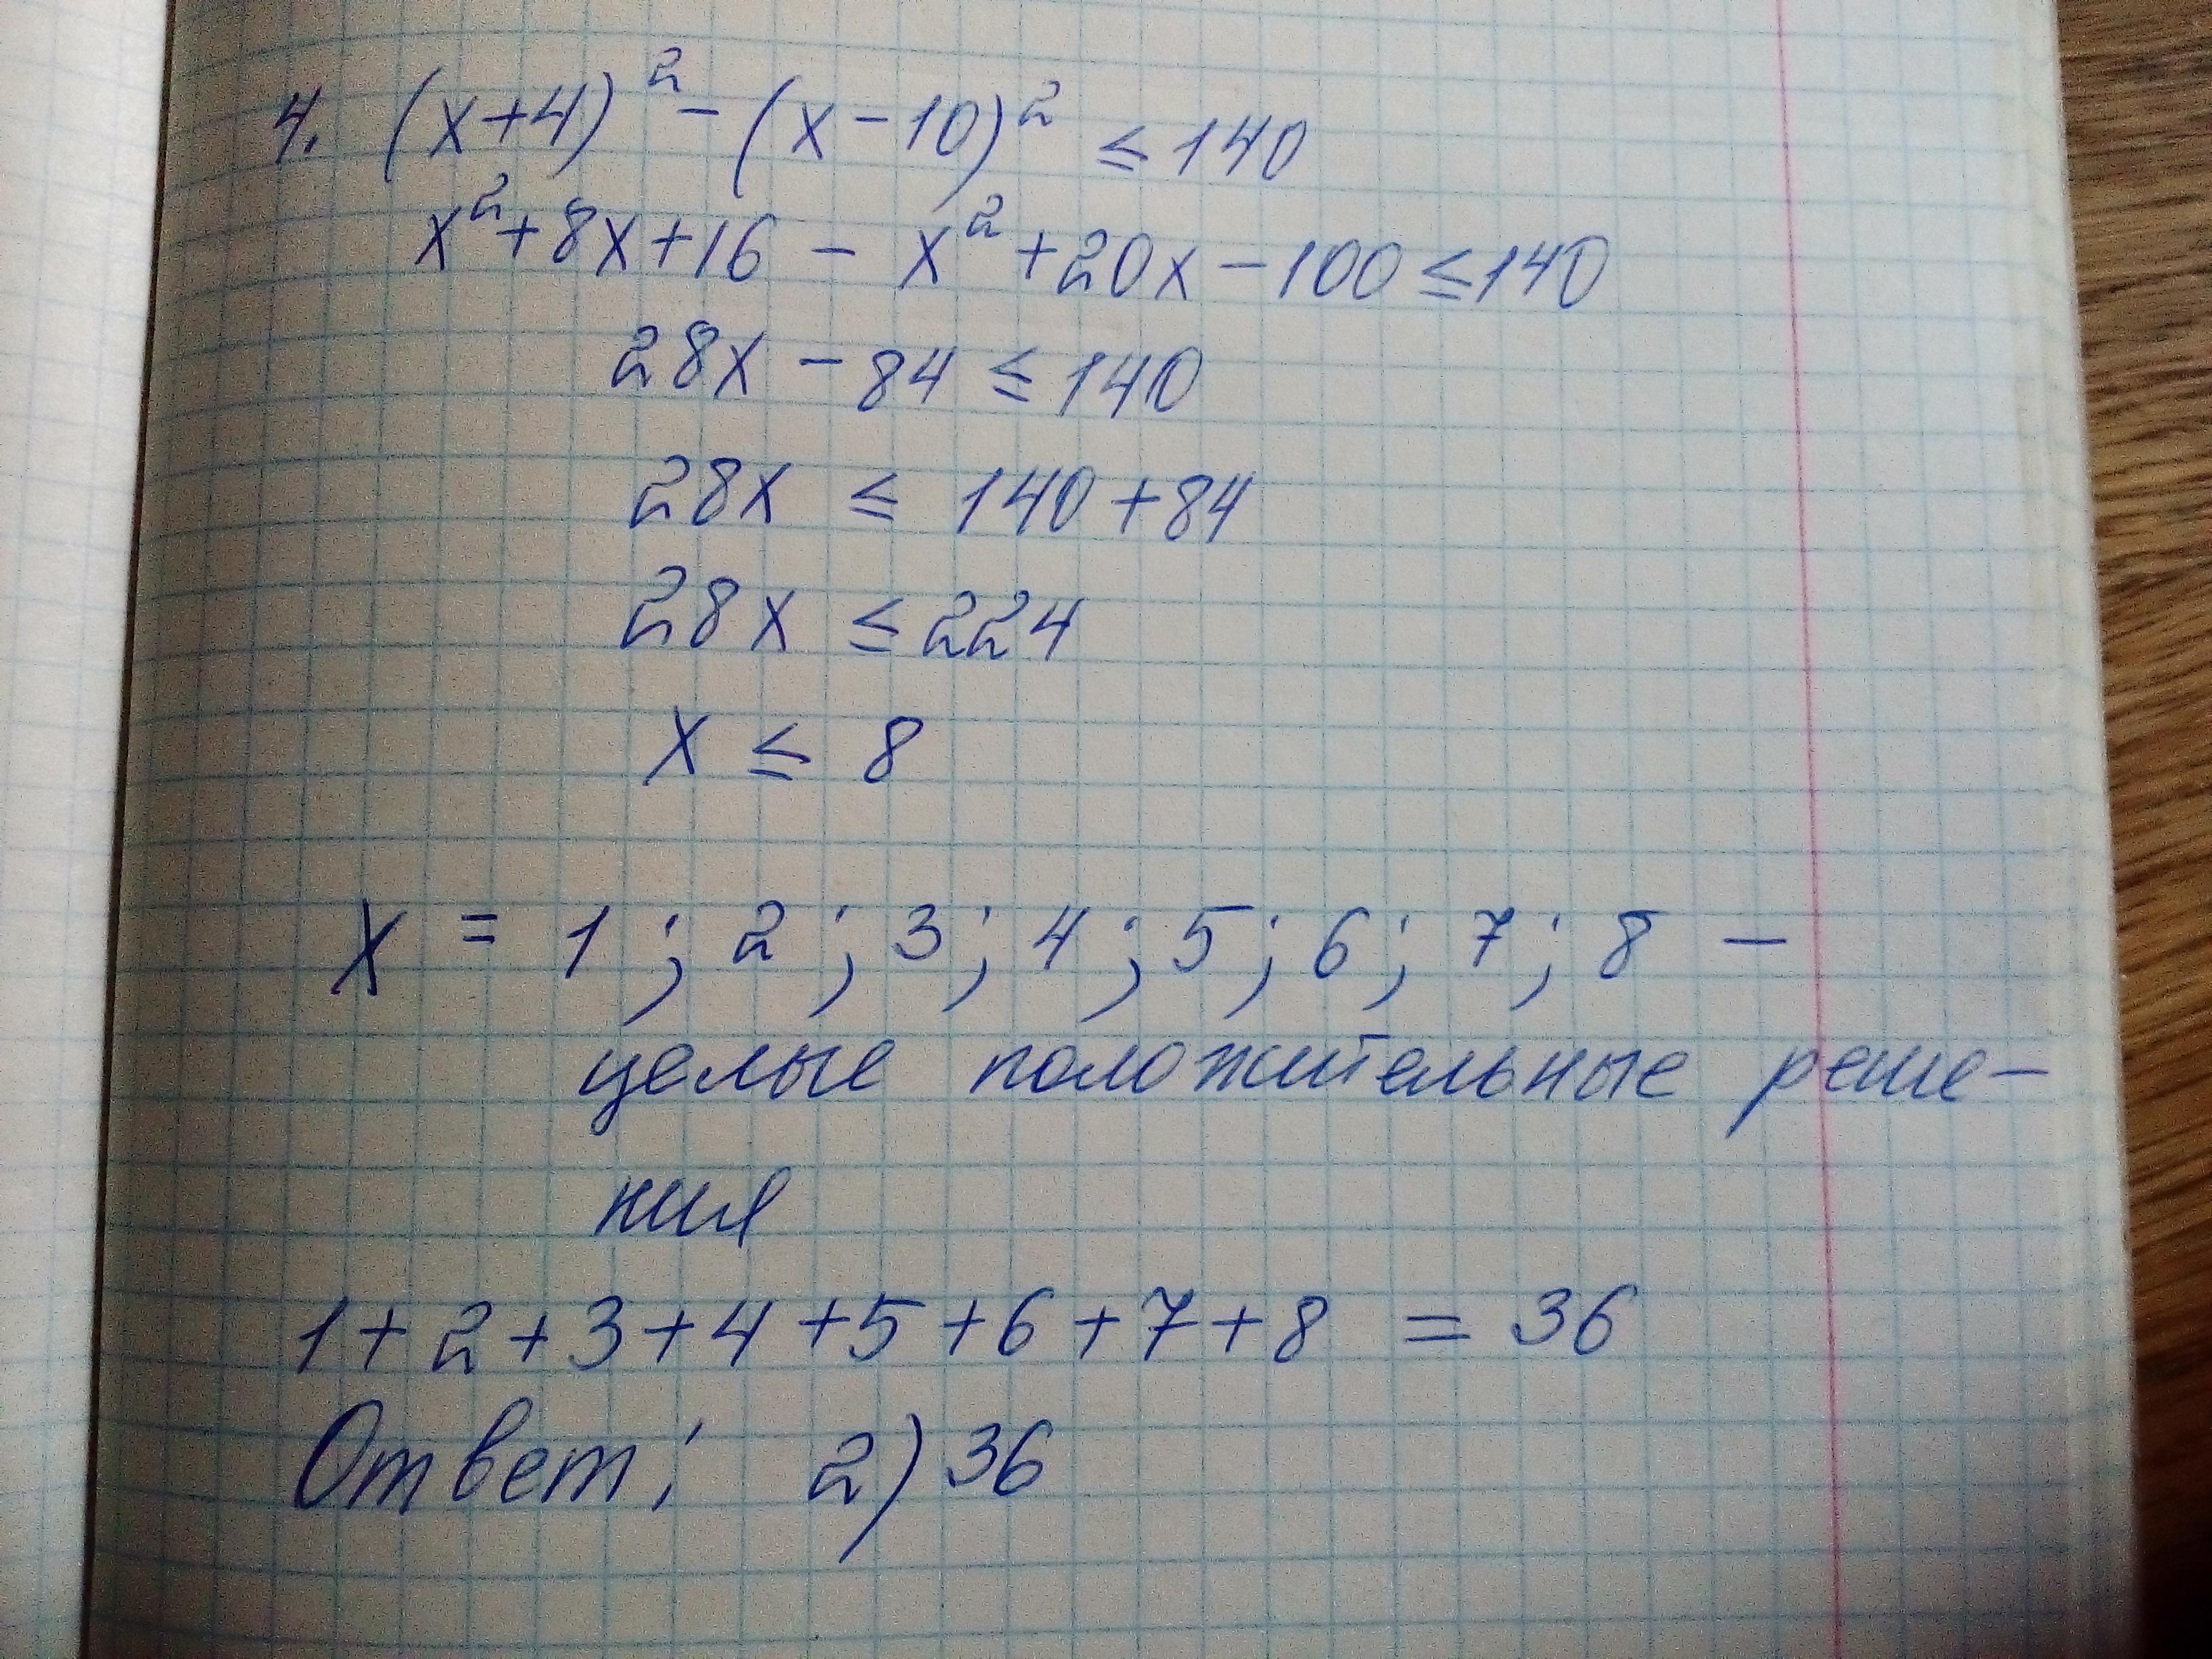 4. (x+4)² - (x-10)² ≤ 140
x² + 8x + 16 - x² + 20x - 100 ≤ 140
28x - 84 ≤ 140
28x ≤ 140 + 84
28x ≤ 224
x ≤ 8
x = 1; 2; 3; 4; 5; 6; 7; 8 -
целые положительные реше-
ния
1+2+3+4+5+6+7+8 = 36
Ответ: 2) 36